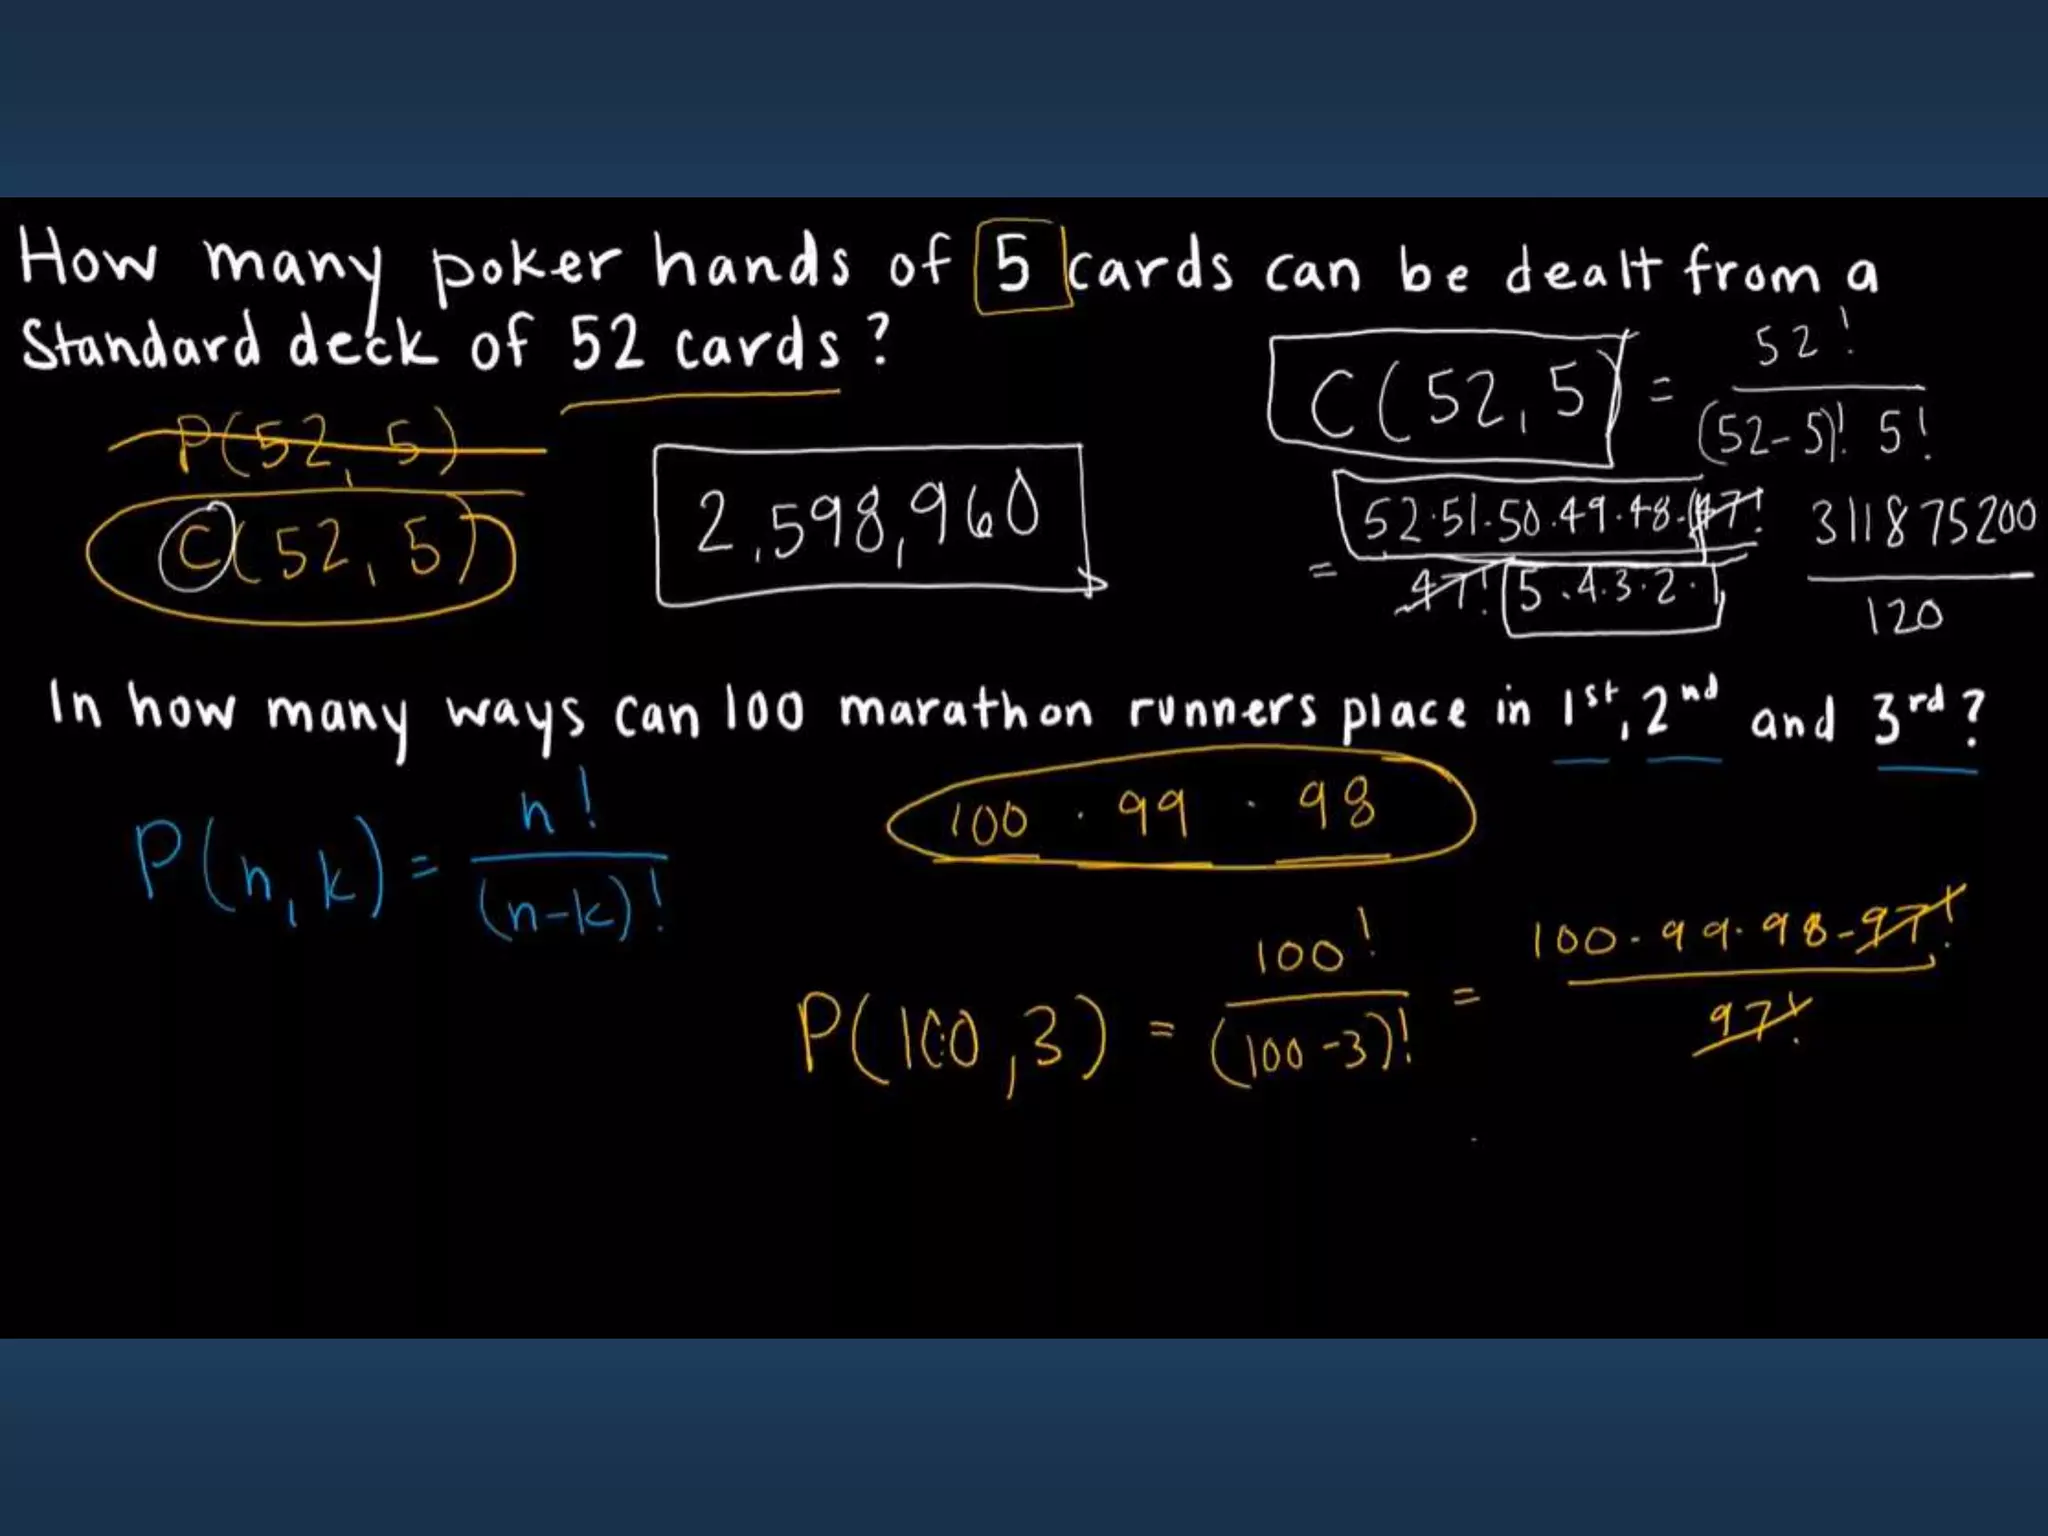 How many poker hands of 5 cards can be dealt from a
Standard deck of 52 cards?
P(52, 5)
C(52, 5)
2,598,960
C(52, 5) = 52! / (52-5)! 5!
= 52·51·50·49·48·47! / 47! 5·4·3·2·1
311875200 / 120
In how many ways can 100 marathon runners place in 1st, 2nd and 3rd?
P(n, k) = n! / (n-k)!
100 · 99 · 98
P(100, 3) = 100! / (100-3)! = 100·99·98·97! / 97!